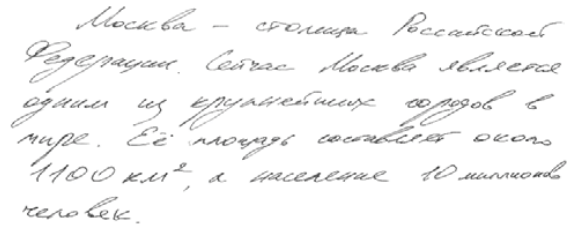 Москва – столица Российской
Федерации. Сейчас Москва является
одним из крупнейших городов в
мире. Её площадь составляет около
1100 км², а население 10 миллионов
человек.